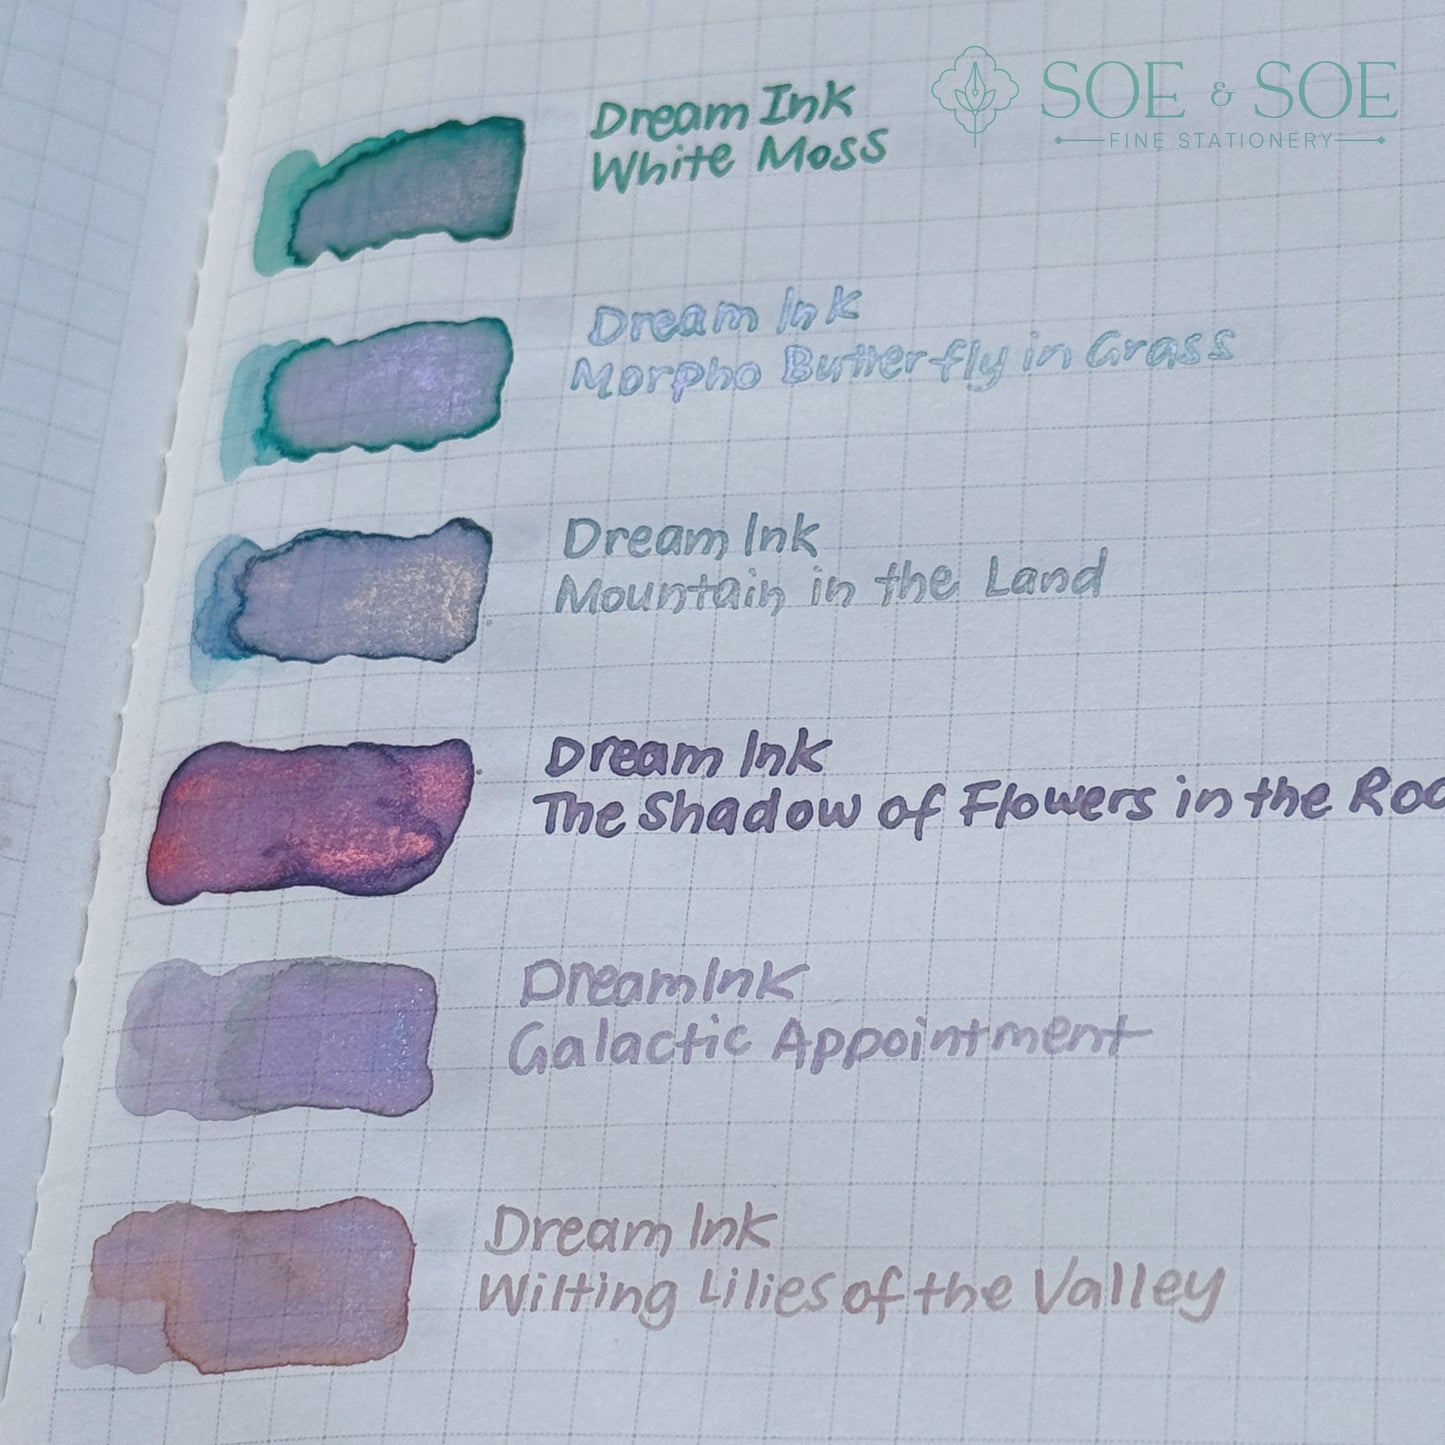 SOE & SOE
FINE STATIONERY
Dream Ink
White Moss
Dream Ink
Morpho Butterfly in Grass
Dream Ink
Mountain in the Land
Dream Ink
The Shadow of Flowers in the
Dream Ink
Galactic Appointment
Dream Ink
Wilting Lilies of the Valley